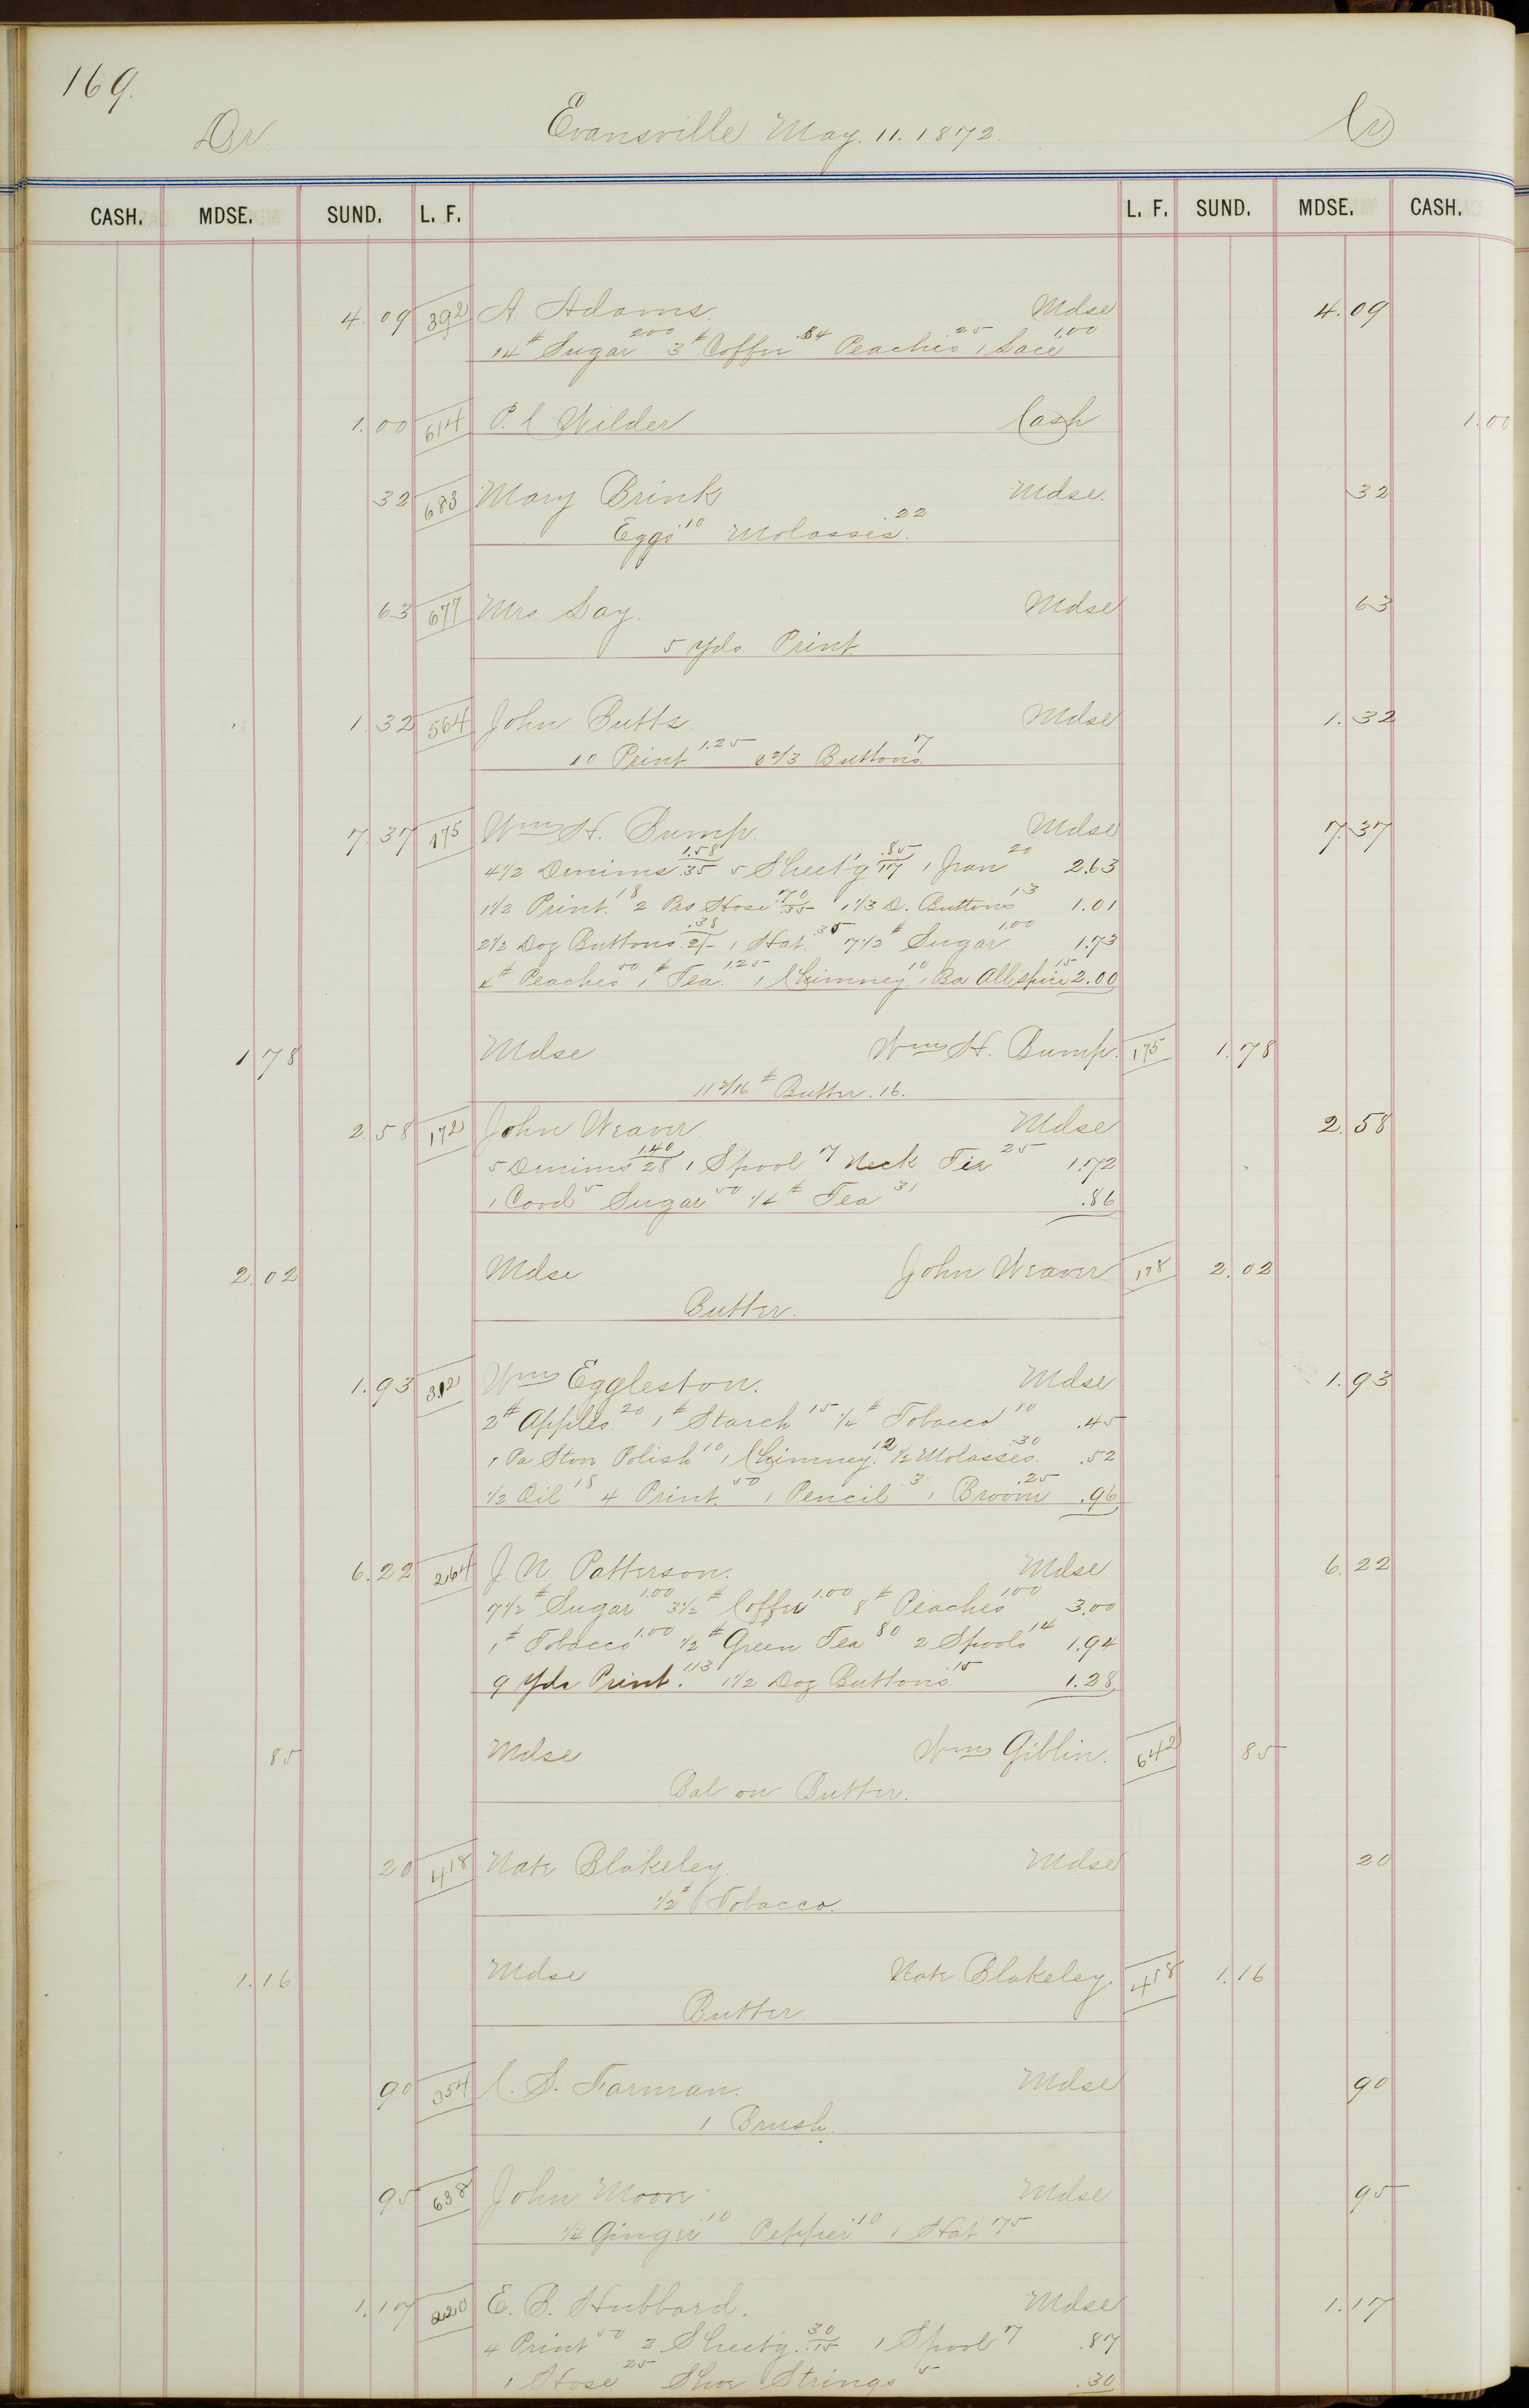 169.
Dr. Evansville May. 11. 1872. Cr
CASH. MDSE. SUND. L. F. L. F. SUND. MDSE. CASH.
4.09 392 A Adams. Mdse 4.09
14# Sugar 200 3# Coffee .84 Peaches 25 1 Sace 1.00
1.00 614 P. C Wilder Cash 1.00
32 683 Mary Brink Mdse. 32
Eggs 10 Molasses .22
63 677 Mrs. Day. Mdse 63
5 Yds. Print
1.32 564 John Butts. Mdse 1.32
10 Print 1.25 Buttons 7
7.37 175 Wm H. Bump. Mdse 7.37
4 1/2 Denims 1.58/.35 5 Sheet'g .85/17 1 Jran 20 2.63
1 1/2 Print. 18 2 Prs Hose .70/.35 1 1/3 D. Buttons 13 1.01
2 1/2 Doz Buttons .38/2/- 1 Hat. 35 7 1/2# Sugar 1.00 1.73
4# Peaches 50 1# Tea. 1.25 1 Chimney 10 1 Ba Allspice 15 2.00
1 78 Mdse Wm H. Bump. 175 1.78
11 2/16# Butter .16.
2.58 172 John Weaver. Mdse 2.58
5 Denims 1.40/28 1 Spool 7 Neck Tie 25 1.72
1 Cord 5 Sugar 50 1/4# Tea 31 .86
2.02 Mdse John Weaver 178 2.02
Butter.
1.93 312 Wm Eggleston. Mdse 1.93
2# Apples. 20 1# Starch 15 1/4# Tobacco 10 .45
1 Pa Stove Polish 10 1 Chimney. 12 1/2 Molasses. .30 .52
1/2 Oil 18 4 Print. 50 1 Pencil 3 1 Broom .25 .96
6.22 264 J. N. Patterson. Mdse 6.22
7 1/2# Sugar 1.00 3 1/2# Coffee 1.00 8# Peaches 100 3.00
1# Tobacco 1.00 1/2# Green Tea 80 2 Spools 14 1.94
9 Yds Print. 113 1 1/2 Doz Buttons. 15 1.28
85 Mdse Wm Giblin. 642 85
Bal on Butter.
20 418 Nate Blakeley. Mdse 20
1/2# Tobacco.
1.16 Mdse Nate Blakeley. 418 1.16
Butter.
90 354 C. S. Farman. Mdse 90
1 Brush.
95 638 John Moore Mdse 95
1/4 Ginger 10 Pepper 10 1 Hat 75
1.17 220 E. B. Hubbard. Mdse 1.17
4 Print 50 2 Sheet'g. 30/.15 1 Spool 7 .87
1 Hose 25 Shoe Strings 5 .30